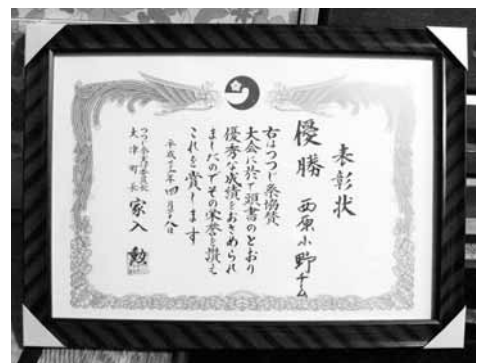 表彰状
優勝 西原小野チーム
右はつつじ祭協賛
大会に於て頭書のとおり
優秀な成績をおさめられ
ましたのでその栄誉を撤え
これを賞します
平成十三年四月十八日
つつじ祭実行委員長
大津町長 家入 勲